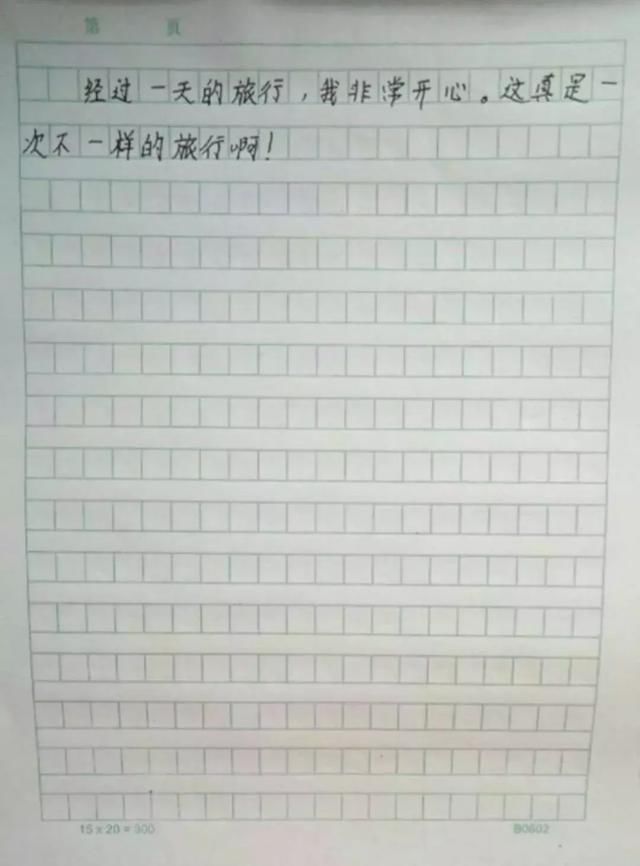 第 頁
经过一天的旅行，我非常开心。这真是一
次不一样的旅行啊！
15 x 20 = 300 B0602